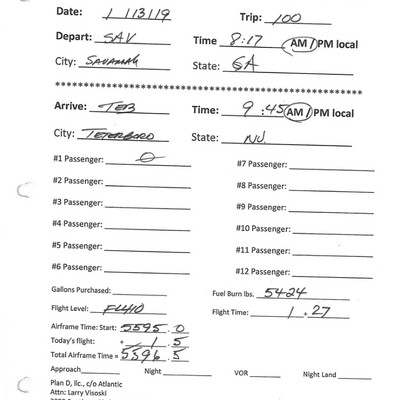 Date: 1 / 13/19 Trip: 100
Depart: SAV Time 8:17 AM/PM local
City: SAVANNAH State: GA
Arrive: TEB Time: 9:45 AM/PM local
City: TETERBORO State: NJ
#1 Passenger: 0 #7 Passenger:
#2 Passenger: #8 Passenger:
#3 Passenger: #9 Passenger:
#4 Passenger: #10 Passenger:
#5 Passenger: #11 Passenger:
#6 Passenger: #12 Passenger:
Gallons Purchased: Fuel Burn lbs. 5424
Flight Level: FL410 Flight Time: 1.27
Airframe Time: Start: 5595.0
Today's flight: + 1.5
Total Airframe Time = 5596.5
Approach Night VOR Night Land
Plan D, llc., c/o Atlantic
Attn: Larry Visoski